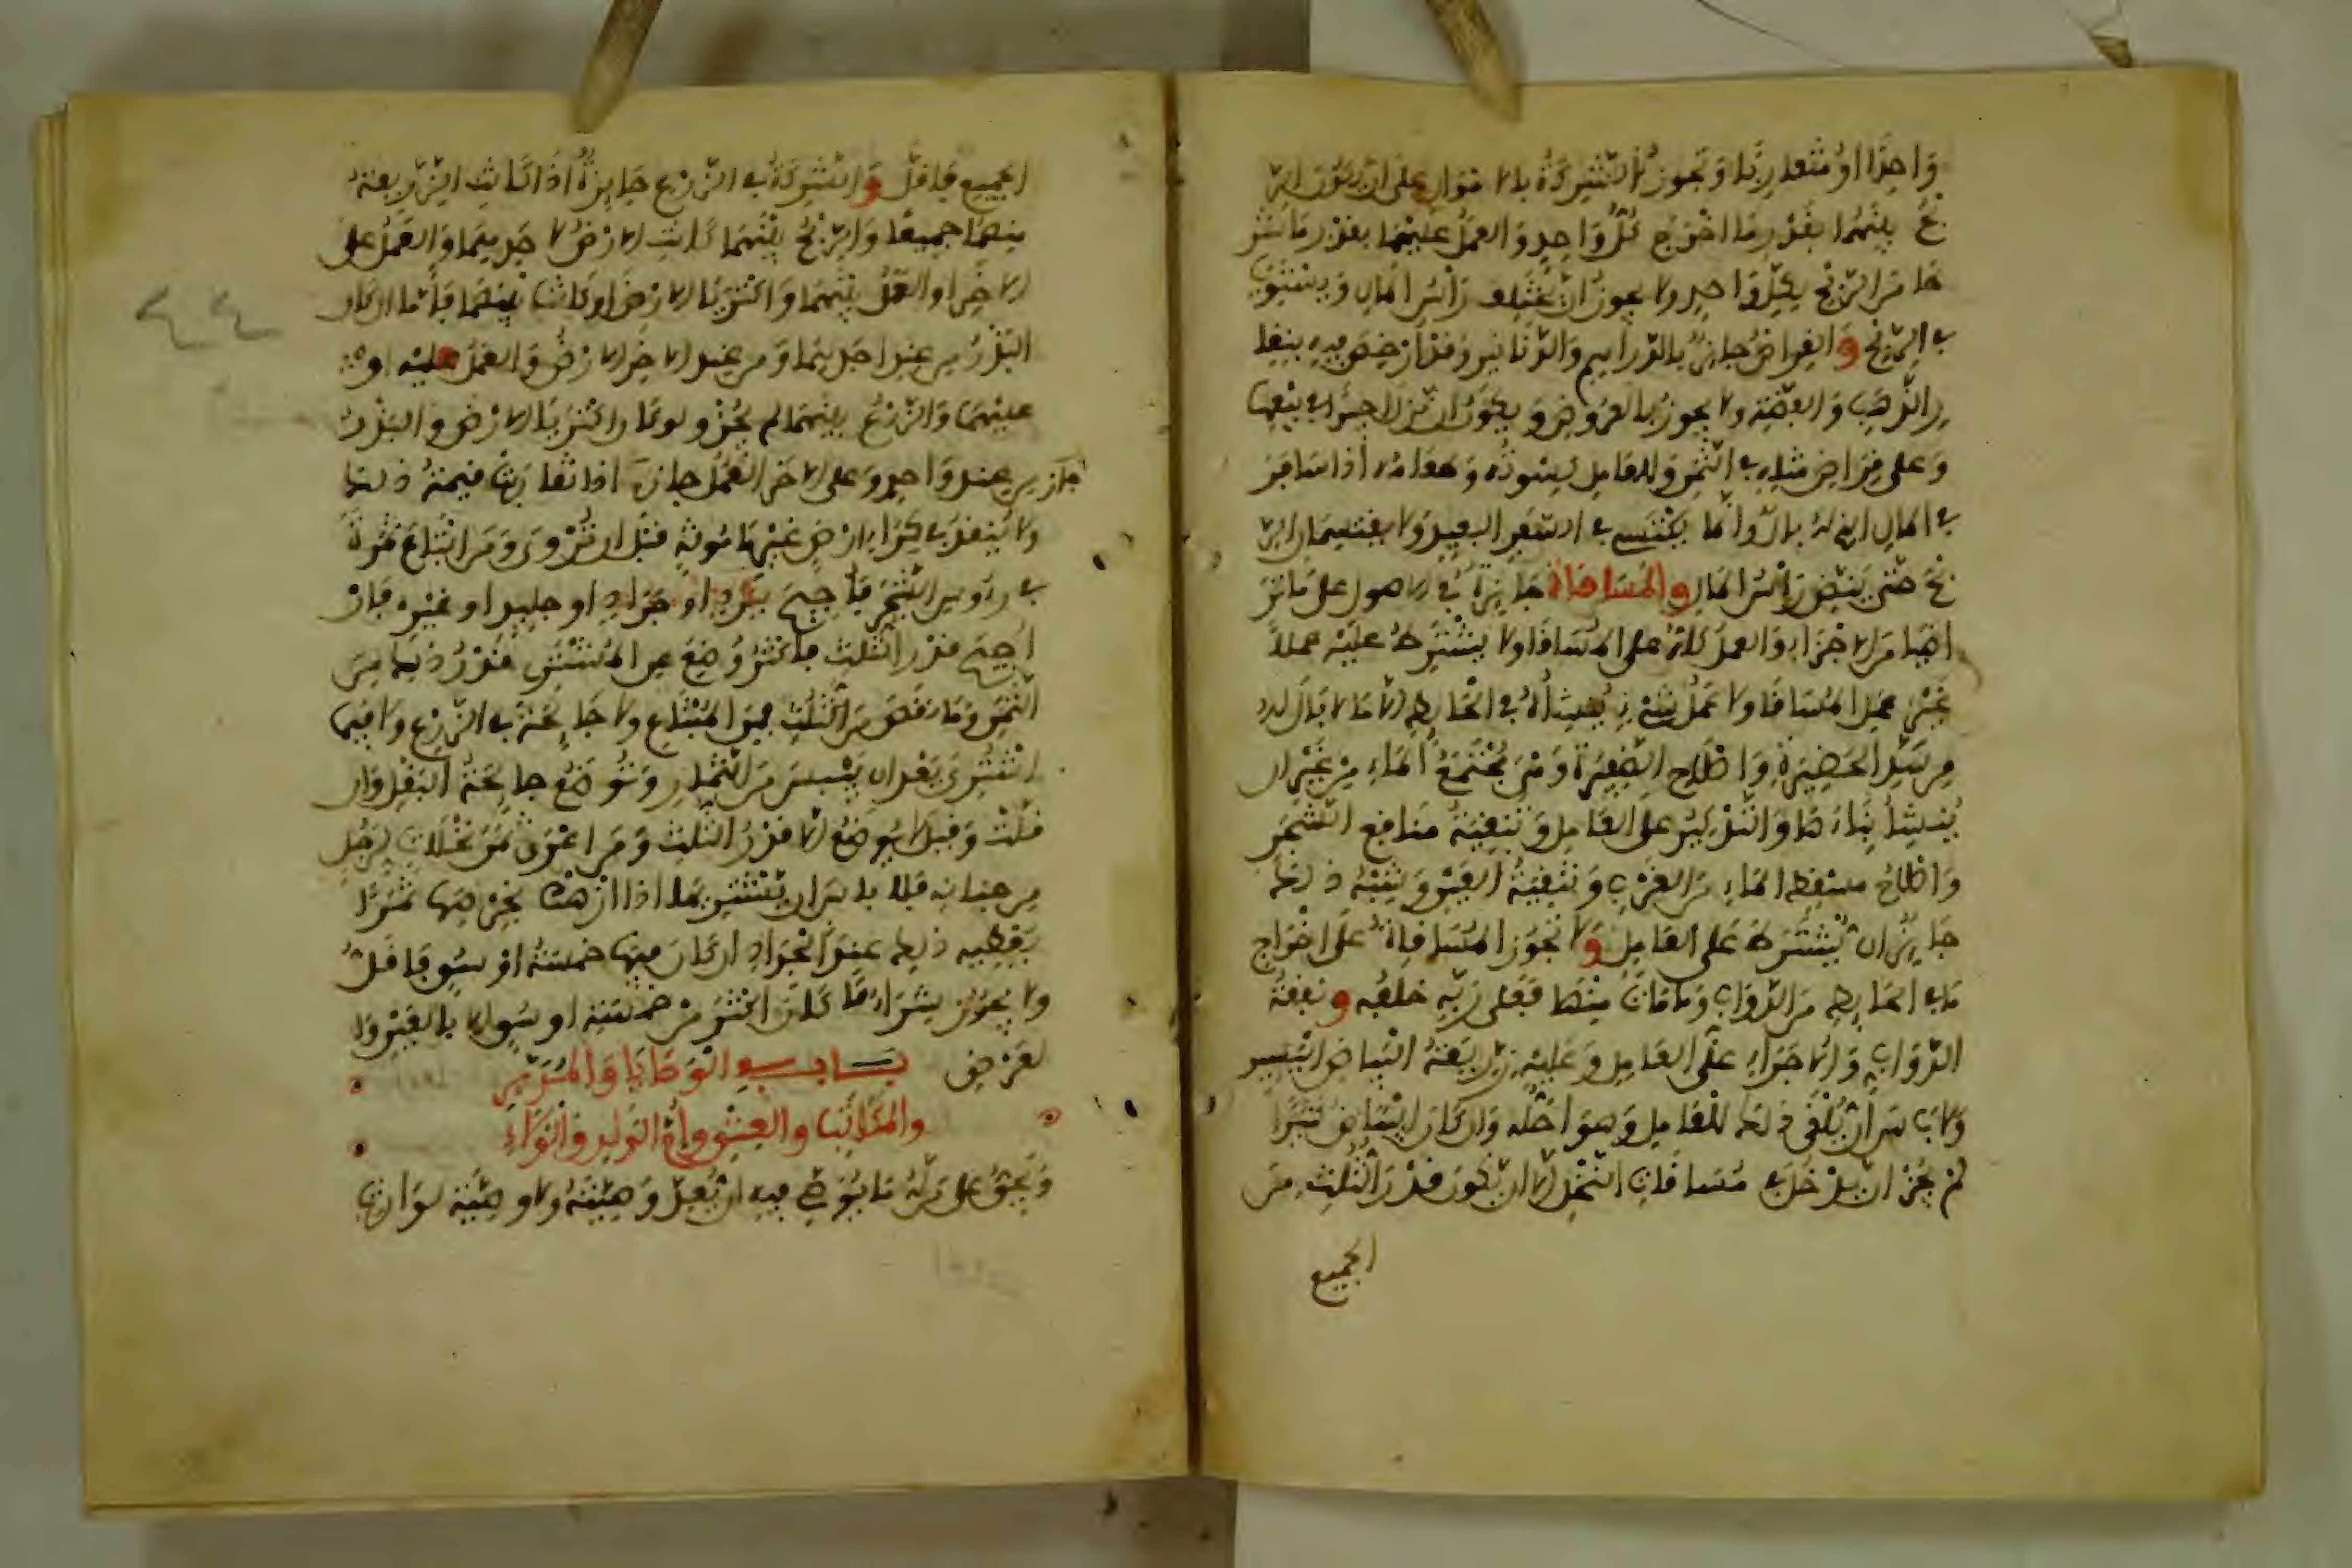 وَاحِدًا أَوْ مُتَقَارِبًا وَتَجُوزُ الشَّرِكَةُ بِالأَمْوَالِ عَلَى أَنْ يَكُونَ الرِّ
بْحُ بَيْنَهُمَا بِقَدْرِ مَا أَخْرَجَ كُلُّ وَاحِدٍ وَالْعَمَلُ عَلَيْهِمَا بِقَدْرِ مَا شَرَ
طَا مِنَ الرِّبْحِ لِكُلِّ وَاحِدٍ وَلا يَجُوزُ أَنْ يَخْتَلِفَ رَأْسُ الْمَالِ وَيَسْتَوِيَا
فِي الرِّبْحِ وَالْقِرَاضُ جَائِزٌ بِالدَّرَاهِمِ وَالدَّنَانِيرِ وَقَدْ أُرْخِصَ فِيهِ بِنِقَا
رِ الذَّهَبِ وَالْفِضَّةِ وَلا يَجُوزُ بِالْعُرُوضِ وَيَكُونُ إِنْ نَزَلَ أَجِيرًا فِي بَيْعِهَا
وَعَلَى قِرَاضِ مِثْلِهِ فِي الثَّمَنِ وَلِلْعَامِلِ كِسْوَتُهُ وَطَعَامُهُ إِذَا سَافَرَ
فِي الْمَالِ الَّذِي لَهُ بَالٌ وَإِنَّمَا يَكْتَسِي فِي السَّفَرِ الْبَعِيدِ وَلا يَقْتَسِمَانِ الرِّ
بْحَ حَتَّى يَنِضَّ رَأْسُ الْمَالِ وَالْمُسَاقَاةُ جَائِزَةٌ فِي الأُصُولِ عَلَى مَا تَرَ
اضَيَا مِنَ الأَجْزَاءِ وَالْعَمَلُ كُلُّهُ عَلَى الْمُسَاقَا وَلا يَشْتَرِطُ عَلَيْهِ عَمَلاً
غَيْرَ عَمَلِ الْمُسَاقَا وَلا عَمَلَ شَيْءٍ يُنْشِئُهُ فِي الْحَائِطِ إِلاَّ مَا لا بَالَ لَهُ
مِنْ سَدِّ الْحَظِيرَةِ وَإِصْلاحِ الضَّفِيرَةِ وَهِيَ مُجْتَمَعُ الْمَاءِ مِنْ غَيْرِ أَنْ
يُنْشِئَ بِنَاءَهَا وَالتَّذْكِيرُ عَلَى الْعَامِلِ وَتَنْقِيَةُ مَنَاقِعِ الشَّجَرِ
وَإِصْلاحُ مَسْقَطِ الْمَاءِ مِنَ الْغَرْبِ وَتَنْقِيَةُ الْعَيْنِ وَشِبْهُ ذَلِكَ
جَائِزٌ أَنْ يُشْتَرَطَ عَلَى الْعَامِلِ وَلا تَجُوزُ الْمُسَاقَاةُ عَلَى إِخْرَاجِ
مَا فِي الْحَائِطِ مِنَ الدَّوَابِّ وَمَا مَاتَ مِنْهَا فَعَلَى رَبِّهِ خَلَفُهُ وَنَفَقَةُ
الدَّوَابِّ وَالأُجَرَاءِ عَلَى الْعَامِلِ وَعَلَيْهِ زَرِيعَةُ الْبَيَاضِ الْيَسِيرِ
وَلا بَأْسَ أَنْ يُلْغَى ذَلِكَ لِلْعَامِلِ وَهُوَ أَحَلُّهُ وَإِنْ كَانَ الْبَيَاضُ كَثِيرًا
لَمْ يَجُزْ أَنْ يَدْخُلَ فِي مُسَاقَاتِ النَّخْلِ إِلاَّ أَنْ يَكُونَ قَدْرَ الثُّلُثِ مِنَ
الجميع
الْجَمِيعِ فَأَقَلَّ وَالشَّرِكَةُ فِي الزَّرْعِ جَائِزَةٌ إِذَا كَانَتِ الزَّرِيعَةُ
مِنْهُمَا جَمِيعًا وَالرِّبْحُ بَيْنَهُمَا كَانَتِ الأَرْضُ لأَحَدِهِمَا وَالْعَمَلُ عَلَى
الآخَرِ أَوِ الْعَمَلُ بَيْنَهُمَا وَاكْتَرَيَا الأَرْضَ أَوْ كَانَتْ بَيْنَهُمَا فَأَمَّا إِنْ كَانَ
الْبَذْرُ مِنْ عِنْدِ أَحَدِهِمَا وَمِنْ عِنْدِ الآخَرِ الأَرْضُ وَالْعَمَلُ عَلَيْهِ أَوْ
عَلَيْهِمَا وَالرِّبْحُ بَيْنَهُمَا لَمْ يَجُزْ وَلَوْ كَانَا اكْتَرَيَا الأَرْضَ وَالْبَذْرُ
مِنْ عِنْدِ وَاحِدٍ وَعَلَى الآخَرِ الْعَمَلُ جَازَ إِذَا تَقَارَبَتْ قِيمَةُ ذَلِكَ
جاز
وَلا يُنْقَدُ فِي كِرَاءِ أَرْضٍ غَيْرِ مَأْمُونَةٍ قَبْلَ أَنْ تُرْوَى وَمَنِ ابْتَاعَ ثَمَرَةً
فِي رُءُوسِ الشَّجَرِ فَأُجِيحَ بِبَرَدٍ أَوْ جَرَادٍ أَوْ جَلِيدٍ أَوْ غَيْرِهِ فَإِنْ
أُجِيحَ قَدْرُ الثُّلُثِ فَأَكْثَرُ وُضِعَ عَنِ الْمُشْتَرِي قَدْرُ ذَلِكَ مِنَ
الثَّمَنِ وَمَا نَقَصَ مِنَ الثُّلُثِ فَمِنَ الْمُبْتَاعِ وَلا جَائِحَةَ فِي الزَّرْعِ وَلا فِيمَا
اشْتُرِيَ بَعْدَ أَنْ يَيْبِسَ مِنَ الثِّمَارِ وَتُوضَعُ جَائِحَةُ الْبُقُولِ وَإِنْ
قَلَّتْ وَقِيلَ لا يُوضَعُ إِلاَّ قَدْرُ الثُّلُثِ وَمَنْ أَعْرَى ثَمَرَ نَخَلاَتٍ لِرَجُلٍ
مِنْ جِنَانِهِ فَلا بَأْسَ أَنْ يَشْتَرِيَهَا إِذَا أَزْهَتْ بِخَرْصِهَا تَمْرًا
يُعْطِيهِ ذَلِكَ عِنْدَ الْجُدَادِ إِنْ كَانَ فِيهَا خَمْسَةُ أَوْسُقٍ فَأَقَلُّ
وَلا يَجُوزُ شِرَاءُ مَا كَانَ أَكْثَرَ مِنْ خَمْسَةِ أَوْسُقٍ إِلاَّ بِالْعَيْنِ وَا
لْعَرْضِ بَابٌ فِي الْوَصَايَا وَالْمُدَبَّرِ
وَالْمُكَاتَبِ وَالْعِتْقِ وَأُمِّ الْوَلَدِ وَالْوَلاءِ
وَيَحِقُّ عَلَى مَنْ لَهُ مَا يُوصِي فِيهِ أَنْ يُعِدَّ وَصِيَّتَهُ وَلا وَصِيَّةَ لِوَارِثٍ